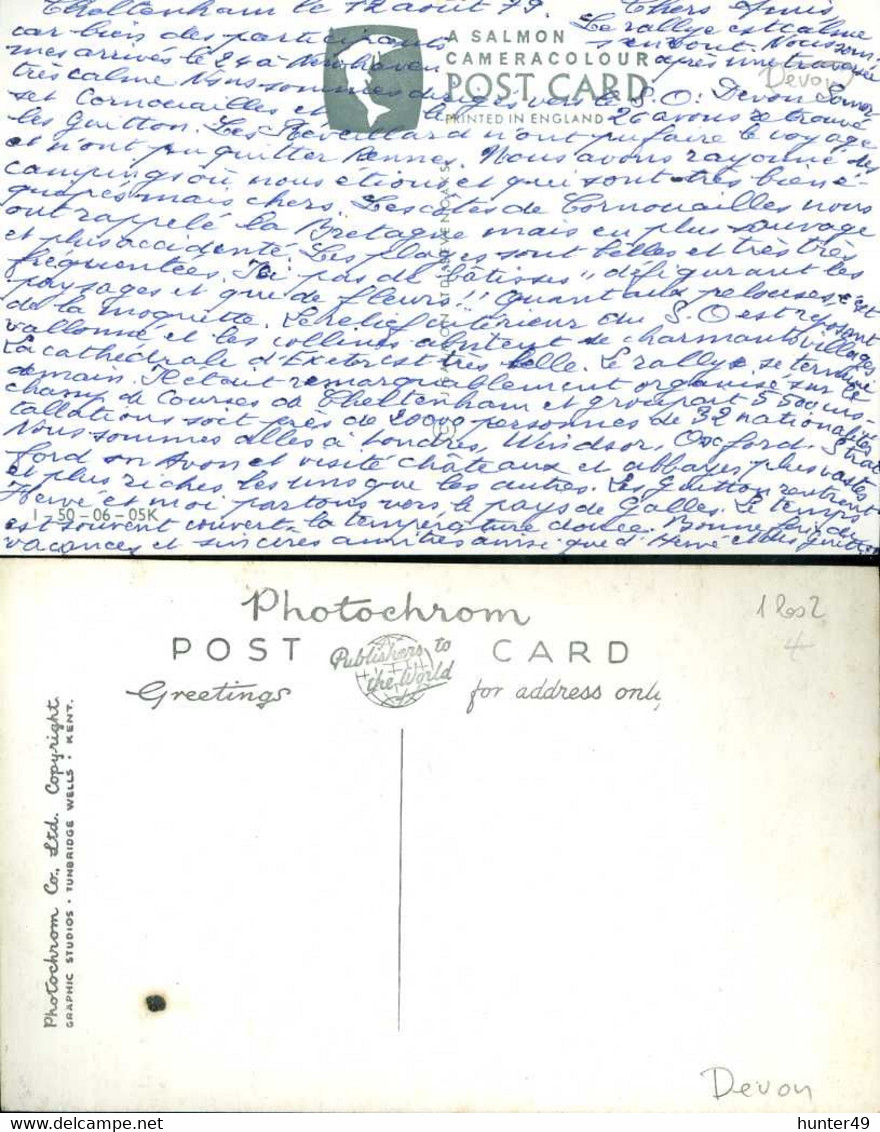 Cheltenham le 12 août 79. Chers Amis
Le rallye est calme
car bien des participants s'en vont. Nous sommes
A SALMON
CAMERACOLOUR
POST CARD
PRINTED IN ENGLAND
Devon
mes arrivés le 24 à Newhaven après une traversée
très calme. Nous sommes dirigés vers le S.O: Devon Somer
set Cornouailles et le 26 avons retrouvé
les Guitton. Les n'ont pu faire le voyage
et n'ont pu quitter Rennes. Nous avons rayonné des
campings où nous étions et qui sont très bien é-
quipés mais chers. Les côtes de Cornouailles nous
ont rappelé la Bretagne mais en plus sauvage
et plus accidenté. Les plages sont belles et très très
fréquentées. Ici pas de "bâtisses" défigurant les
paysages et que de fleurs!! Quant aux pelouses c'est
de la moquette. Le relief intérieur du S.O est reposant
vallonné et les collines abritent de charmants villages
La cathédrale d'Exeter est très belle. Le rallye se termine
demain. Il était remarquablement organisé sur le
champ de courses de Cheltenham et groupait 5500 ins-
tallations soit près de 20000 personnes de 32 nationalités
Nous sommes allés à Londres, Windsor, Oxford, Strat
ford on Avon et visité châteaux et abbayes plus vastes
et plus riches les uns que les autres. Les Guitton rentrent
Hervé et moi partons vers le pays de Galles. Le temps
1-50-06-05K
est souvent couvert la température douce. Bonne fin de
vacances et sincères amitiés ainsi que d'Hervé et des Guitton
Photochrom
POST CARD
Publishers to
the World
Greetings for address only
Photochrom Co., Ltd. Copyright
GRAPHIC STUDIOS · TUNBRIDGE WELLS · KENT.
Devon
hunter49